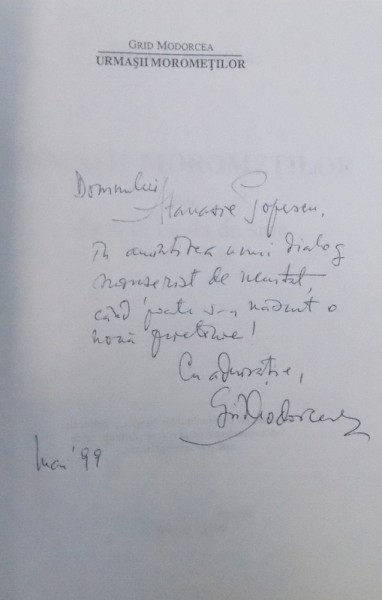 GRID MODORCEA
URMAȘII MOROMEȚILOR
Domnului
Atanasie Popescu,
în amintirea unui dialog
manuscris de neuitat,
când poate s-a născut o
nouă prietenie!
Cu admirație,
Grid Modorcea
Mai '99